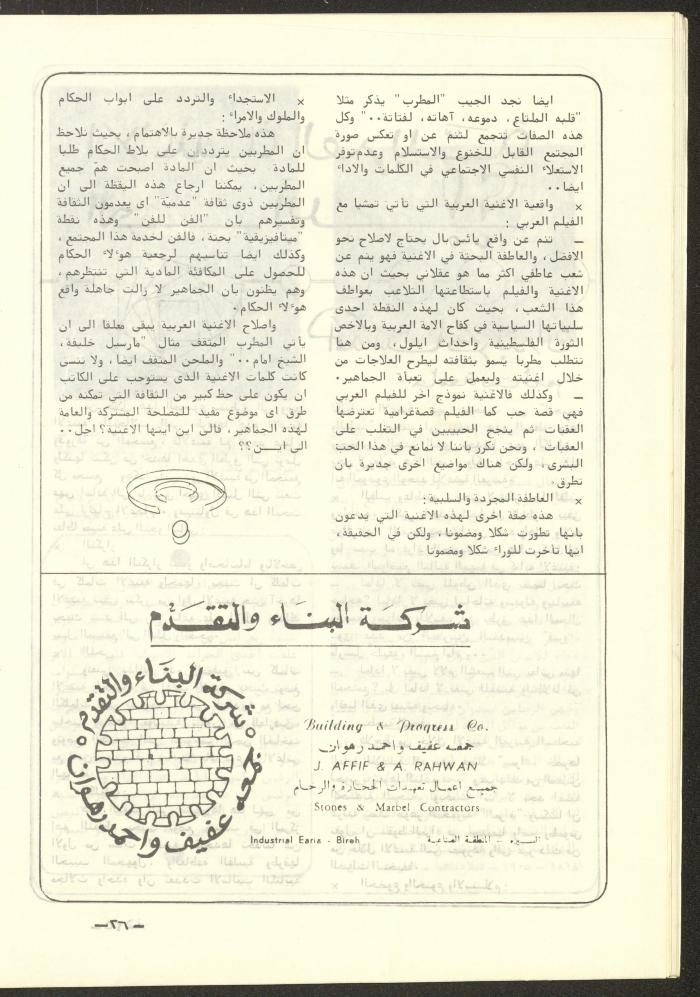 ايضا نجد الجيب "المطرب" يذكر مثلا
"قلبه الملتاع، دموعه، آهاته، لفتاتة٠٠" وكل
هذه الصفات تتجمع لتنم عن او تعكس صورة
المجتمع القابل للخنوع والاستسلام وعدم توفر
الاستعلاء النفسي الاجتماعي في الكلمات والاداء
ايضا٠٠
× واقعية الاغنية العربية التي تأتي تمشيا مع
الفيلم العربي :
ــ تنم عن واقع يائس بال يحتاج لاصلاح نحو
الافضل، والعاطفة البحتة في الاغنية فهو ينم عن
شعب عاطفي اكثر مما هو عقلاني بحيث ان هذه
الاغنية والفيلم باستطاعتها التلاعب بعواطف
هذا الشعب، بحيث كان لهذه النقطة احدى
سلبياتها السياسية في كفاح الامة العربية وبالاخص
الثورة الفلسطينية واحداث ايلول، ومن هنا
نتطلب مطربا يسمو بثقافته ليطرح العلاجات من
خلال اغنيته وليعمل على تعبأة الجماهير٠
ــ وكذلك فالاغنية نموذج اخر للفيلم العربي
فهي قصة حب كما الفيلم قصةغرامية تعترضها
العقبات ثم ينجح الحبيبين في التغلب على
العقبات ، ونحن نكرر باننا لا نمانع في هذا الحب
البشرى، ولكن هناك مواضيع اخرى جديرة بان
تطرق٠
× العاطفة المجردة والسلبية:
هذه صفة اخرى لهذه الاغنية التي يدعون
بانها تطورت شكلا ومضمونا، ولكن في الحقيقة،
انها تأخرت للوراء شكلا ومضمونا
× الاستجداء والتردد على ابواب الحكام
والملوك والامراء :
هذه ملاحظة جديرة بالاهتمام، بحيث نلاحظ
ان المطربين يترددان على بلاط الحكام طلبا
للمادة بحيث ان المادة اصبحت همّ جميع
المطربين، يمكننا ارجاع هذه النقطة الى ان
المطربين ذوى ثقافة "عدميّة" اى يعدمون الثقافة
وتفسيرهم بان "الفن للفن" وهذه نقطة
"ميتافيزيقية" بحتة، فالفن لخدمة هذا المجتمع،
وكذلك ايضا تناسبهم لرجعية هوءلاء الحكام
للحصول على المكافئة المادية التي تنتظرهم،
وهم يظنون بان الجماهير لا زالت جاهلة واقع
هوءلاء الحكام٠
واصلاح الاغنية العربية يبقى معلقا الى ان
يأتي المطرب المثقف مثال "مارسيل خليفة،
الشيخ امام٠٠" والملحن المثقف ايضا، ولا ننسى
كاتب كلمات الاغنية الذى يستوجب على الكاتب
ان يكون على حظ كبير من الثقافة التي تمكنه من
طرق اى موضوع مفيد للمصلحة المشتركة والعامة
لهذه الجماهير، فالى اين ايتها الاغنية؟ اجل٠٠
الى ايــن؟؟
شركة البناء والتقدّم
شركة البناء والتقدم
جمعه عفيف واحمد رهوان
Building & Progress Co.
جمعه عفيف واحمد رهوان
J. AFFIF & A. RAHWAN
جميع اعمال تعهدات الحجارة والرخام
Stones & Marbel Contractors
البيره - المنطقة الصناعية
Industrial Earia - Bireh
ــ٢٦ــ